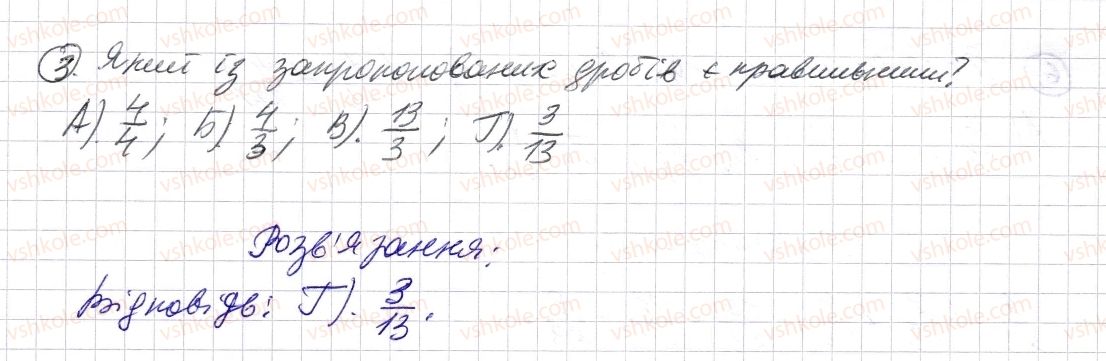 3. Який із запропонованих дробів є правильним?
А). 4/4; Б). 4/3; В). 13/3; Г). 3/13
Розв'язання:
Відповідь: Г). 3/13.